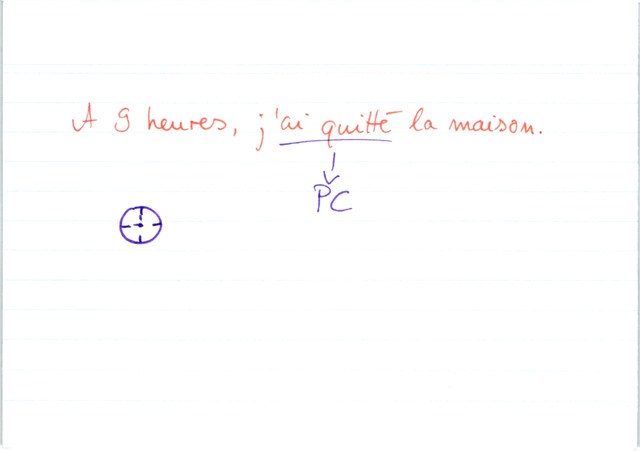 A 9 heures, j'ai quitté la maison.
PC